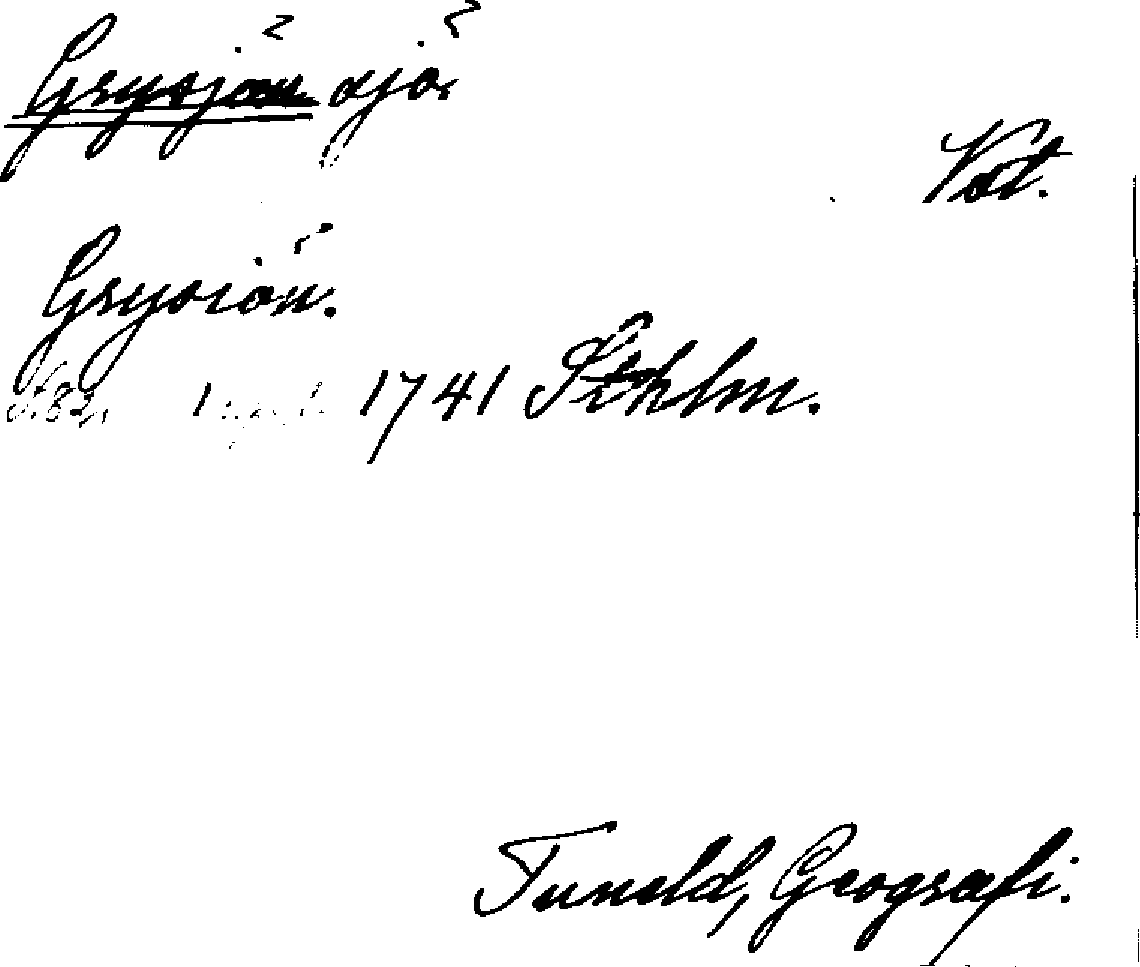 Grysjön sjö.
Vat.
Grysiön.
1741 Sthlm.
Tuneld, Geografi.